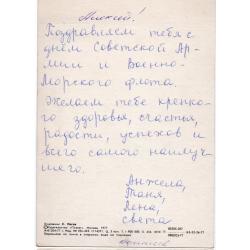 Алексей!
Поздравляем тебя с
днём Советской Ар-
мии и Военно-
Морского флота.
Желаем тебе крепко-
го здоровья, счастья,
радости, успехов и
всего самого наилуч-
шего.
Анжела,
Таня,
Лена,
Света